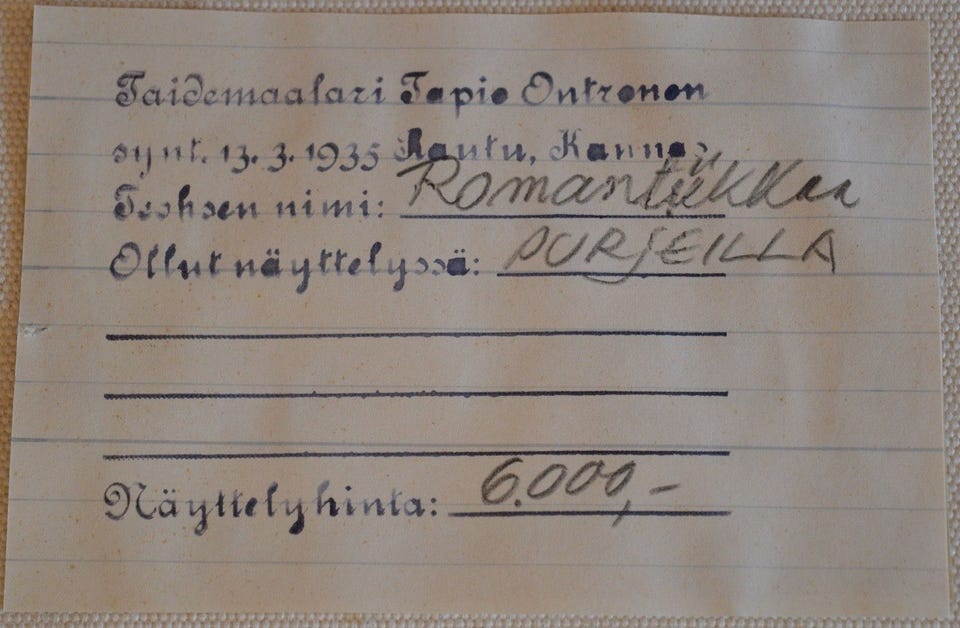 Taidemaalari Tapio Ontronen
synt. 13.3.1935 Rautu, Kannas
Teoksen nimi: Romantiikkaa
Ollut näyttelyssä: PURJEILLA
Näyttelyhinta: 6.000,-